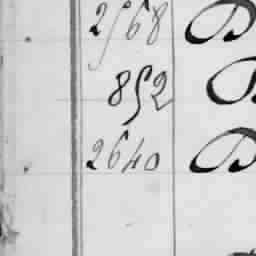 2568 B
852 B
2640 B